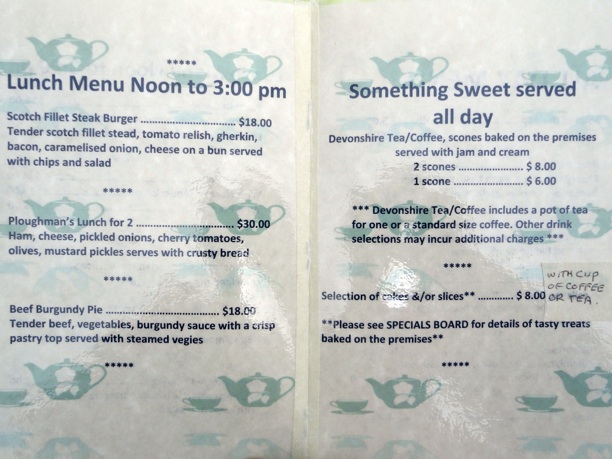 *****
Lunch Menu Noon to 3:00 pm
Scotch Fillet Steak Burger ................................ $18.00
Tender scotch fillet stead, tomato relish, gherkin,
bacon, caramelised onion, cheese on a bun served
with chips and salad
*****
Ploughman's Lunch for 2 .................................. $30.00
Ham, cheese, pickled onions, cherry tomatoes,
olives, mustard pickles serves with crusty bread
*****
Beef Burgundy Pie .................................... $18.00
Tender beef, vegetables, burgundy sauce with a crisp
pastry top served with steamed vegies
*****
Something Sweet served
all day
Devonshire Tea/Coffee, scones baked on the premises
served with jam and cream
2 scones ....................... $ 8.00
1 scone ........................ $ 6.00
*** Devonshire Tea/Coffee includes a pot of tea
for one or a standard size coffee. Other drink
selections may incur additional charges ***
*****
Selection of cakes &/or slices** ............ $ 8.00
WITH CUP
OF COFFEE
OR TEA.
**Please see SPECIALS BOARD for details of tasty treats
baked on the premises**
*****